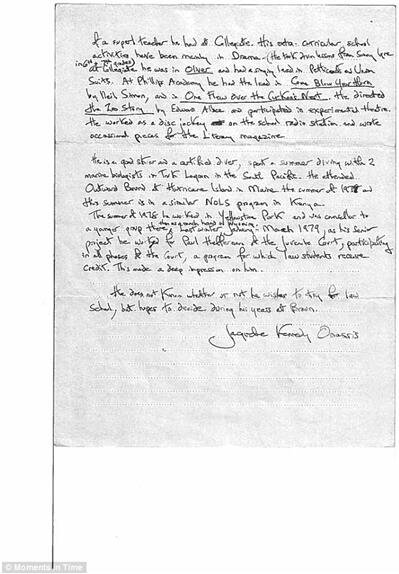 of a superb teacher he had at Collegiate. His extra-curricular school
activities have been mainly in Drama - (He took drum lessons from
in 6th & 7th grades)
at Collegiate he was in Oliver and had a singing lead in Petticoats and Union
Suits. At Phillips Academy he had the lead in Come Blow Your Horn
by Neil Simon, and in One Flew Over the Cuckoo's Nest. He directed
the Zoo Story by Edward Albee and participated in experimental theatre.
He worked as a disc jockey on the school radio station and wrote
occasional pieces for the Literary magazine
He is a good skier and a certified diver, spent a summer diving with 2
marine biologists in Truk Lagoon in the South Pacific. He attended
Outward Bound at Hurricane Island in Maine the summer of 197 and
this summer is in a similar NOLS program in Kenya.
The summer of 1978 he worked in Yellowstone Park and was counsellor to
then as a ranch hand in Wyoming
a younger group there. Last winter, January - March 1979, as his senior
project he worked for Paul Heffernan at the Juvenile Court, participating
in all phases of the Court, a program for which law students receive
credit. This made a deep impression on him.
He does not know whether or not he wishes to try for law
School, but hopes to decide during his years at Brown.
Jacqueline Kennedy Onassis
© Moments in Time